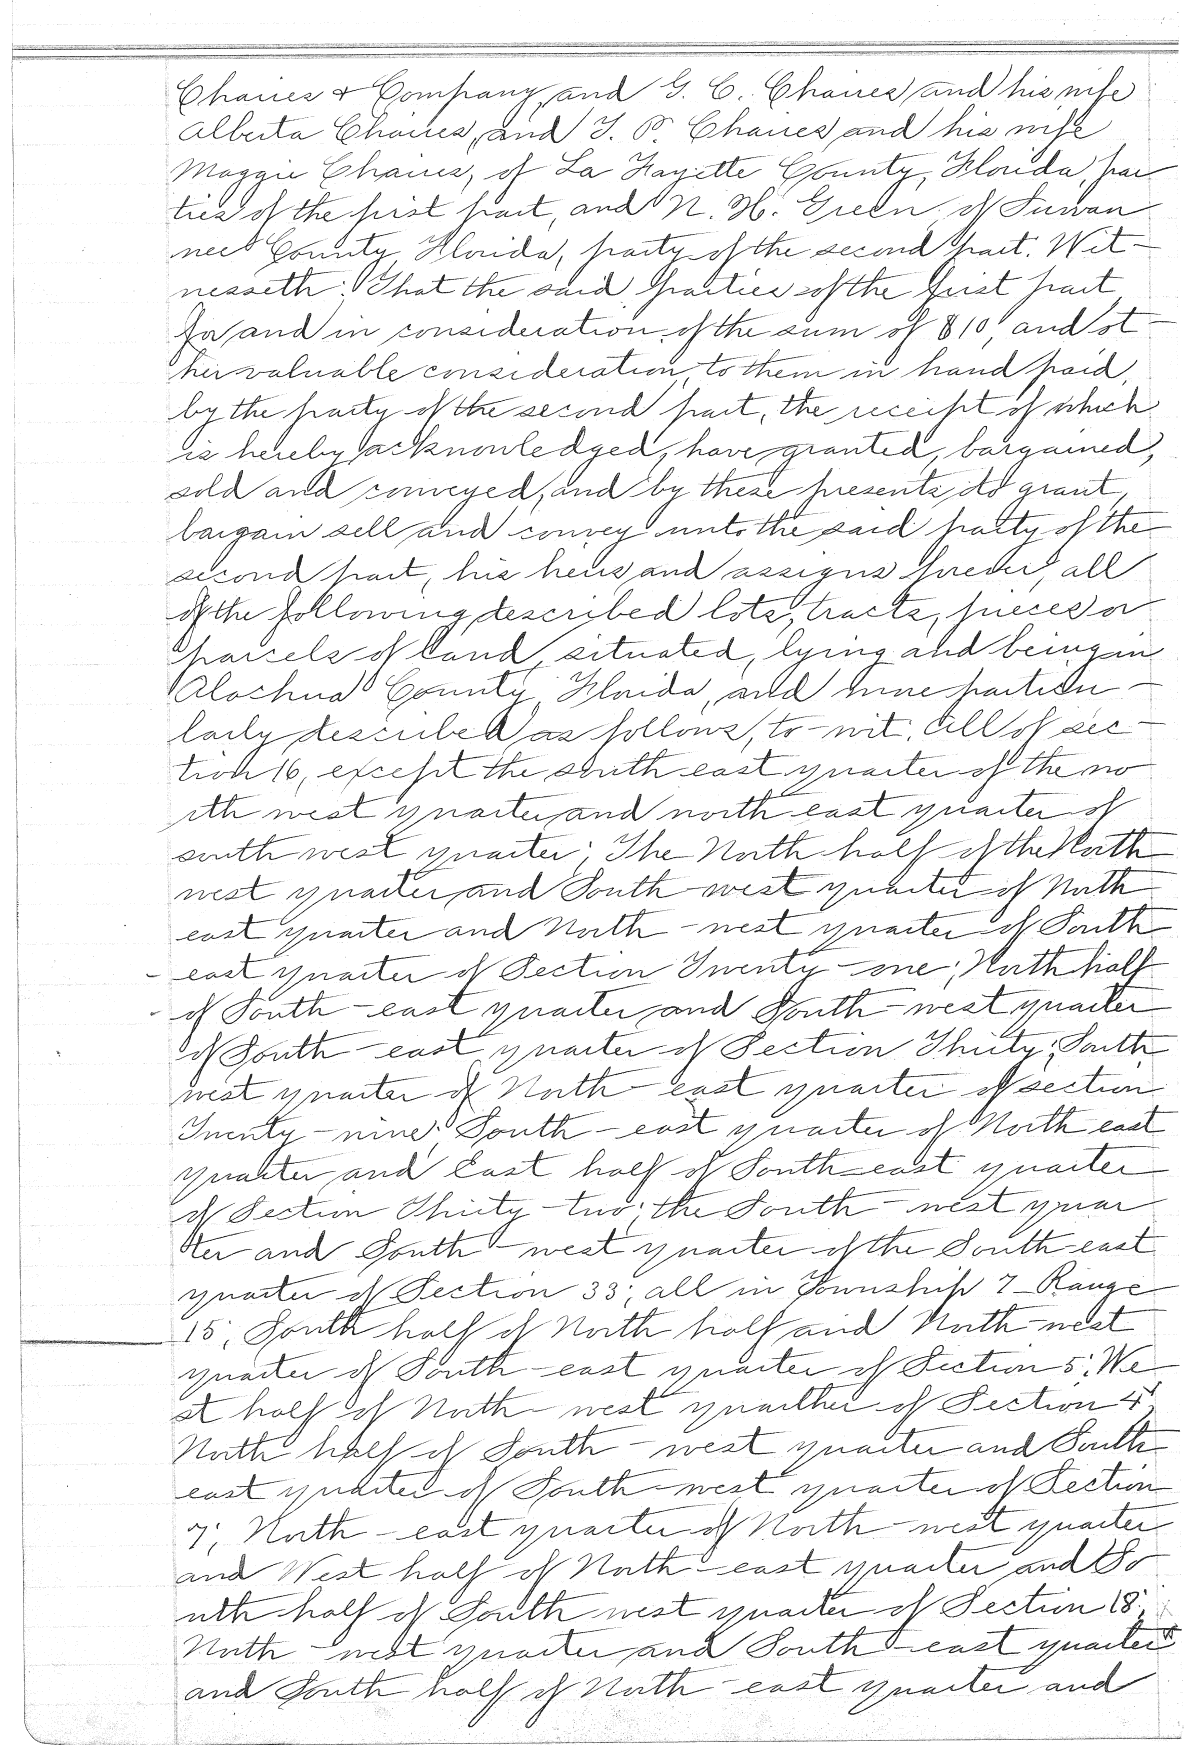 Chaires & Company, and G. C. Chaires and his wife
Alberta Chaires, and T. P. Chaires and his wife
Maggie Chaires, of La Fayette County, Florida, par
ties of the first part, and N. H. Green of Suwan
nee County, Florida, party of the second part. Wit-
nesseth: That the said parties of the first part,
for and in consideration of the sum of $10, and ot-
her valuable consideration, to them in hand paid,
by the party of the second part, the receipt of which
is hereby acknowledged, have granted, bargained,
sold and conveyed, and by these presents, do grant,
bargain sell and convey unto the said party of the
second part, his heirs, and assigns forever, all
of the following described lots, tracts, pieces or
parcels of land, situated, lying and being in
Alachua County, Florida, and more particu-
larly described as follows, to-wit; All of sec-
tion 16, except the south east quarter of the no
rth west quarter, and north east quarter of
south west quarter; The North half of the North
west quarter and South-west quarter of North
east quarter and North-west quarter of South
east quarter of Section Twenty-one; North half
of South-east quarter and South-west quarter
of South-east quarter of Section Thirty; South
west quarter of North-east quarter of section
Twenty-nine; South-east quarter of North east
quarter and East half of South-east quarter
of Section Thirty-two; the South-west quar
ter and South-west quarter of the South-east
quarter of Section 33; all in Township 7 - Range
15; South half of North half and North-west
quarter of South-east quarter of Section 5; We
st half of North-west quarther of Section 4;
North half of South-west quarter and South
east quarter of South-west quarter of Section
7; North-east quarter of North-west quarter
and West half of North-east quarter and So
uth half of South west quarter of Section 18;
North-west quarter and South-east quarter
and South half of North-east quarter and